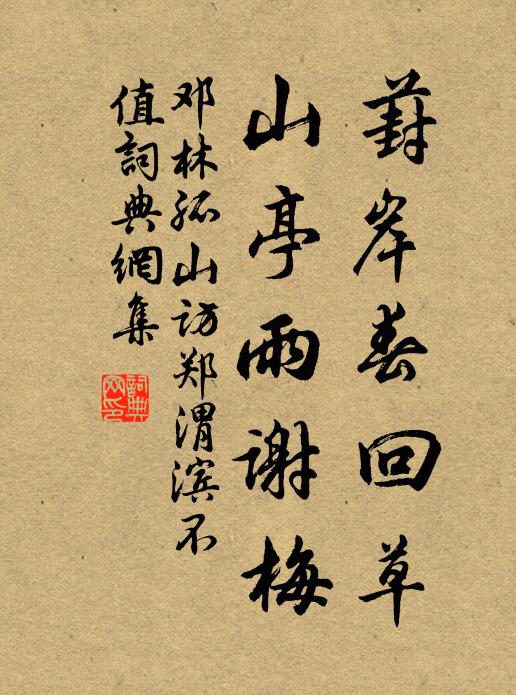 葑岸春回草
山亭雨谢梅
邓林孤山访郑渭滨不
值詞典網集
詞典
网印